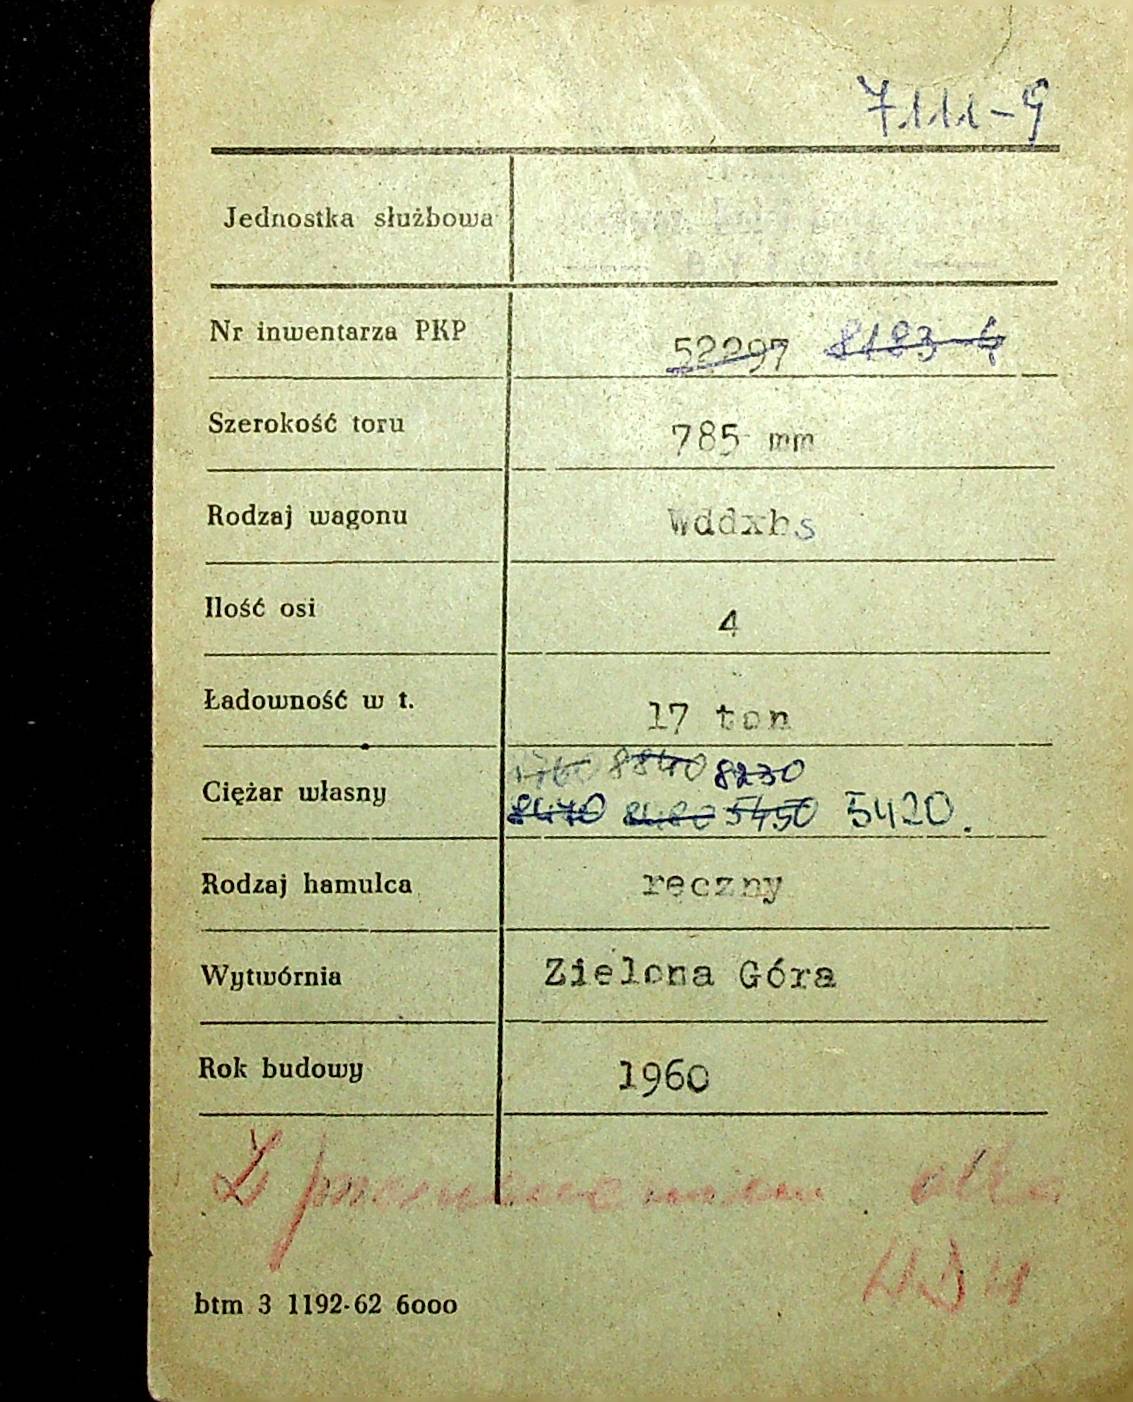 7111-9
Jednostka służbowa
BYTOM
Nr inwentarza PKP 52297 8183-4
Szerokość toru 785 mm
Rodzaj wagonu Wddxhs
Ilość osi 4
Ładowność w t. 17 ton
8840 8230
Ciężar własny 8470 8480 5450 5420.
Rodzaj hamulca ręczny
Wytwórnia Zielona Góra
Rok budowy 1960
Z przeznaczeniem dla
btm 3 1192-62 6000